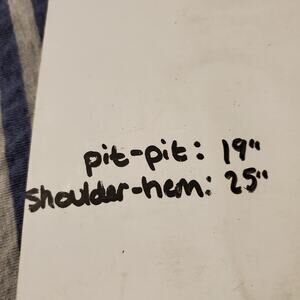 pit-pit: 19"
shoulder-hem: 25"